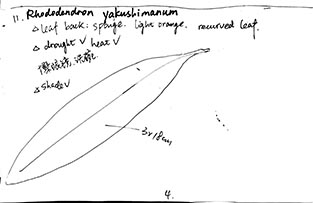 11. Rhododendron yakushimanum
△ leaf back: sponge. light orange. recurved leaf.
△ drought ✓ heat ✓
△ shade ✓
4.